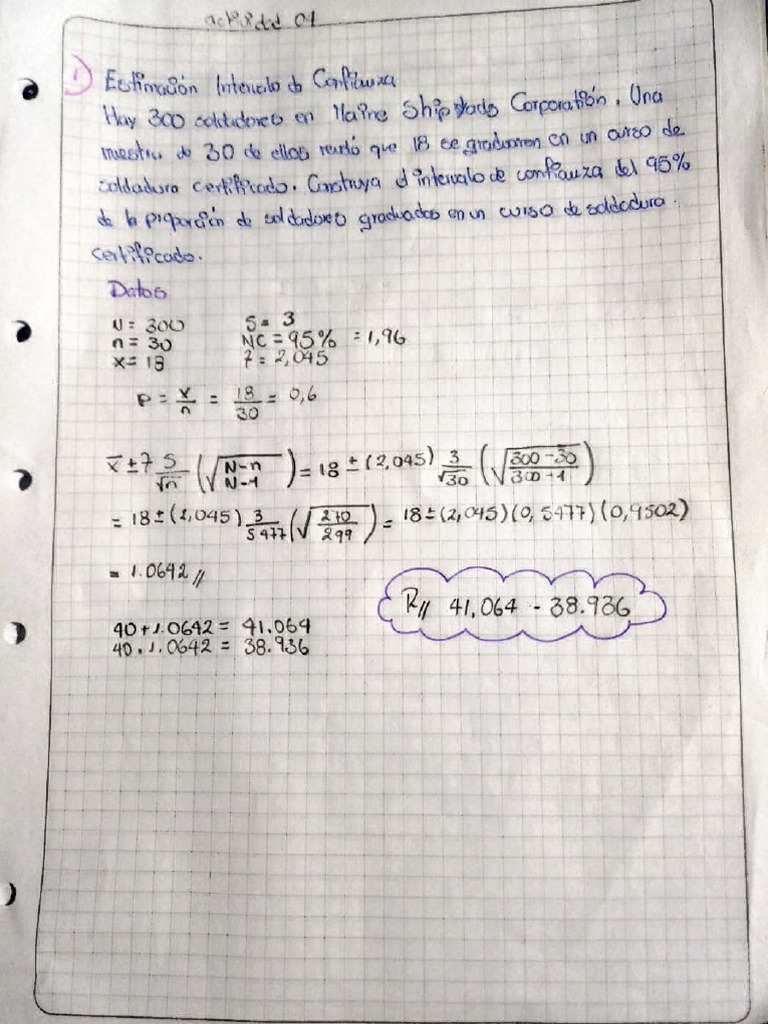 actividad 01
1) Estimación Intervalo de Confianza
Hay 300 soldadores en Maine Shipyads Corporation. Una
muestra de 30 de ellos reveló que 18 se graduaron en un curso de
soldadura certificado. Construya el intervalo de confianza del 95%
de la proporción de soldadores graduados en un curso de soldadura
certificado.
Datos
N = 300 S = 3
n = 30 NC = 95% = 1,96
x = 18 t = 2,045
P = x/n = 18/30 = 0,6
x̄ ± t S/√n (√(N-n/N-1)) = 18 ± (2,045) 3/√30 (√(300-30/300-1))
= 18 ± (2,045) 3/5477 (√(270/299)) = 18 ± (2,045) (0,5477) (0,9502)
= 1.0642 //
R// 41,064 - 38.936
40 + 1.0642 = 41.064
40 . 1.0642 = 38.936